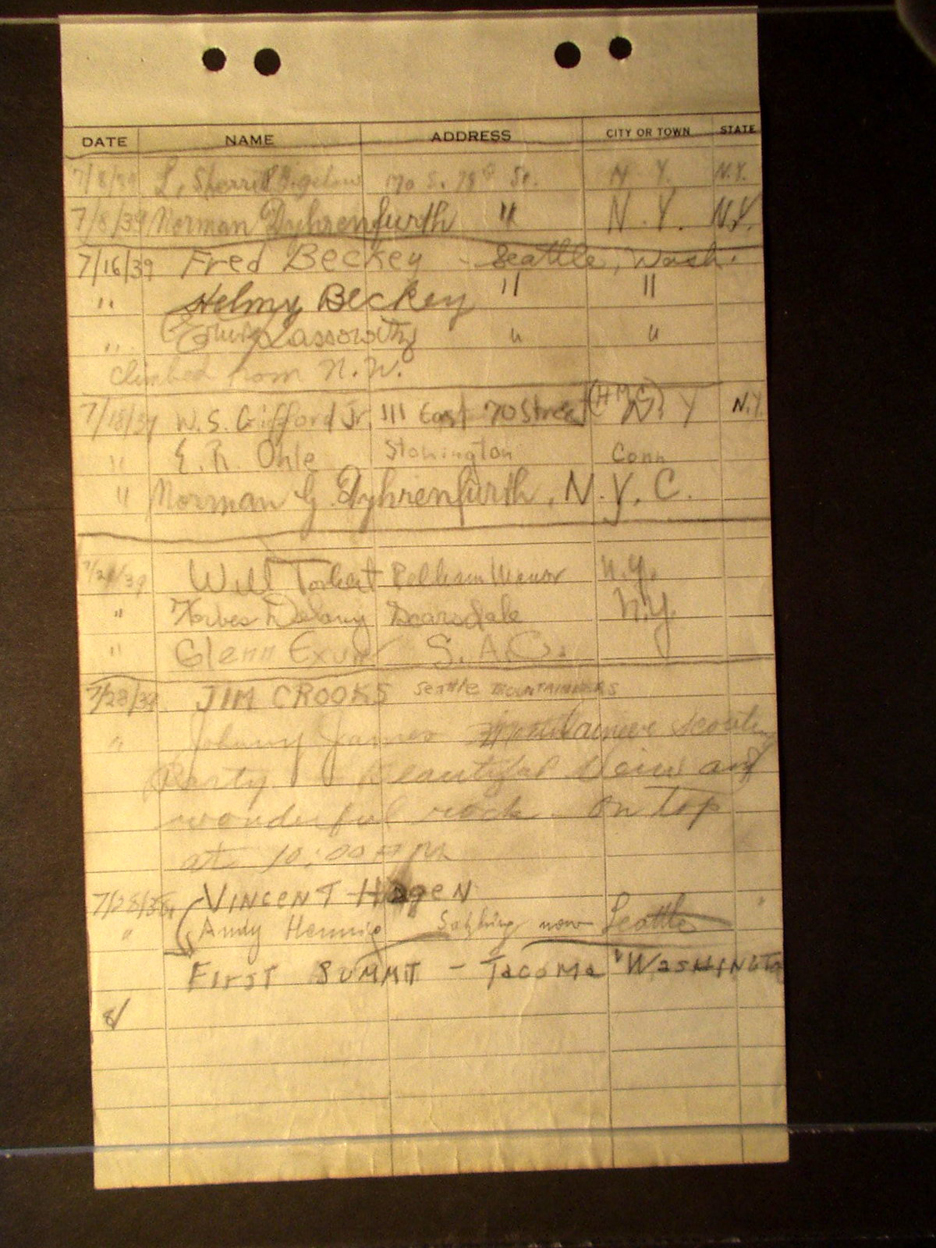 DATE NAME ADDRESS CITY OR TOWN STATE
7/8/39 L. Sherrill Bigelow 170 E. 78th St. N. Y. N.Y.
7/8/39 Norman Dyhrenfurth " N.Y. N.Y.
7/16/39 Fred Beckey - Seattle, Wash.
" Helmy Beckey " "
" Lassowitz " "
climbed from N.W.
7/18/39 W.S. Gifford Jr. 111 East 70 Street (HMC) N. Y N.Y.
" E. R. Ohle Stonington Conn
" Norman G. Dyhrenfurth, N.Y.C.
39 Will Pelham Manor N.Y.
" Forbes Delany Scarsdale N.Y.
" Glenn Exum S.A.C.
7/23/39 JIM CROOKS Seattle MOUNTAINEERS
" Johnny James Mountaineer Scouting
Party. Beautiful view and
wonderful rock. On top
at 10:00
7/25/39 VINCENT HAgeN "
" Andy Hennig now Seattle
FIRST SUMMIT - TACOMA "WASHINGTON
8/